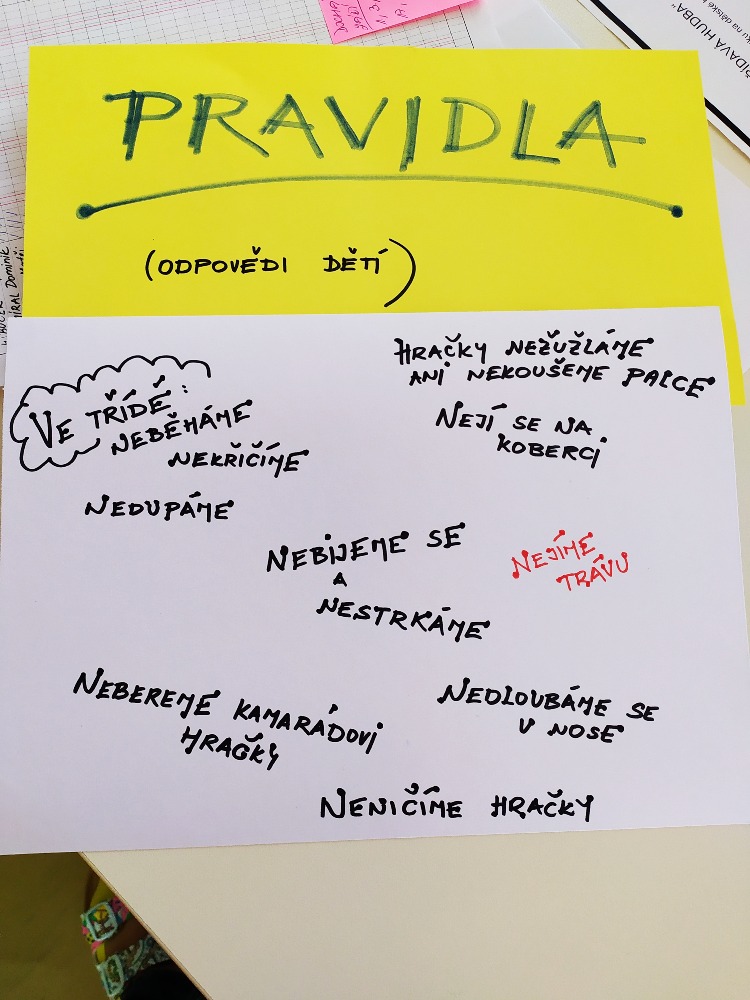 PRAVIDLA
(ODPOVĚDI DĚTÍ)
VE TŘÍDĚ:
NEBĚHÁME
NEKŘIČÍME
NEDUPÁME
HRAČKY NEŽUŽLÁME
ANI NEKOUŠEME PALCE
NEJÍ SE NA
KOBERCI
NEBIJEME SE
A
NESTRKÁME
NEJÍME
TRÁVU
NEBEREME KAMARÁDOVI
HRAČKY
NEDLOUBÁME SE
V NOSE
NENIČÍME HRAČKY
Dominik
ÍDAVÁ HUDBA"